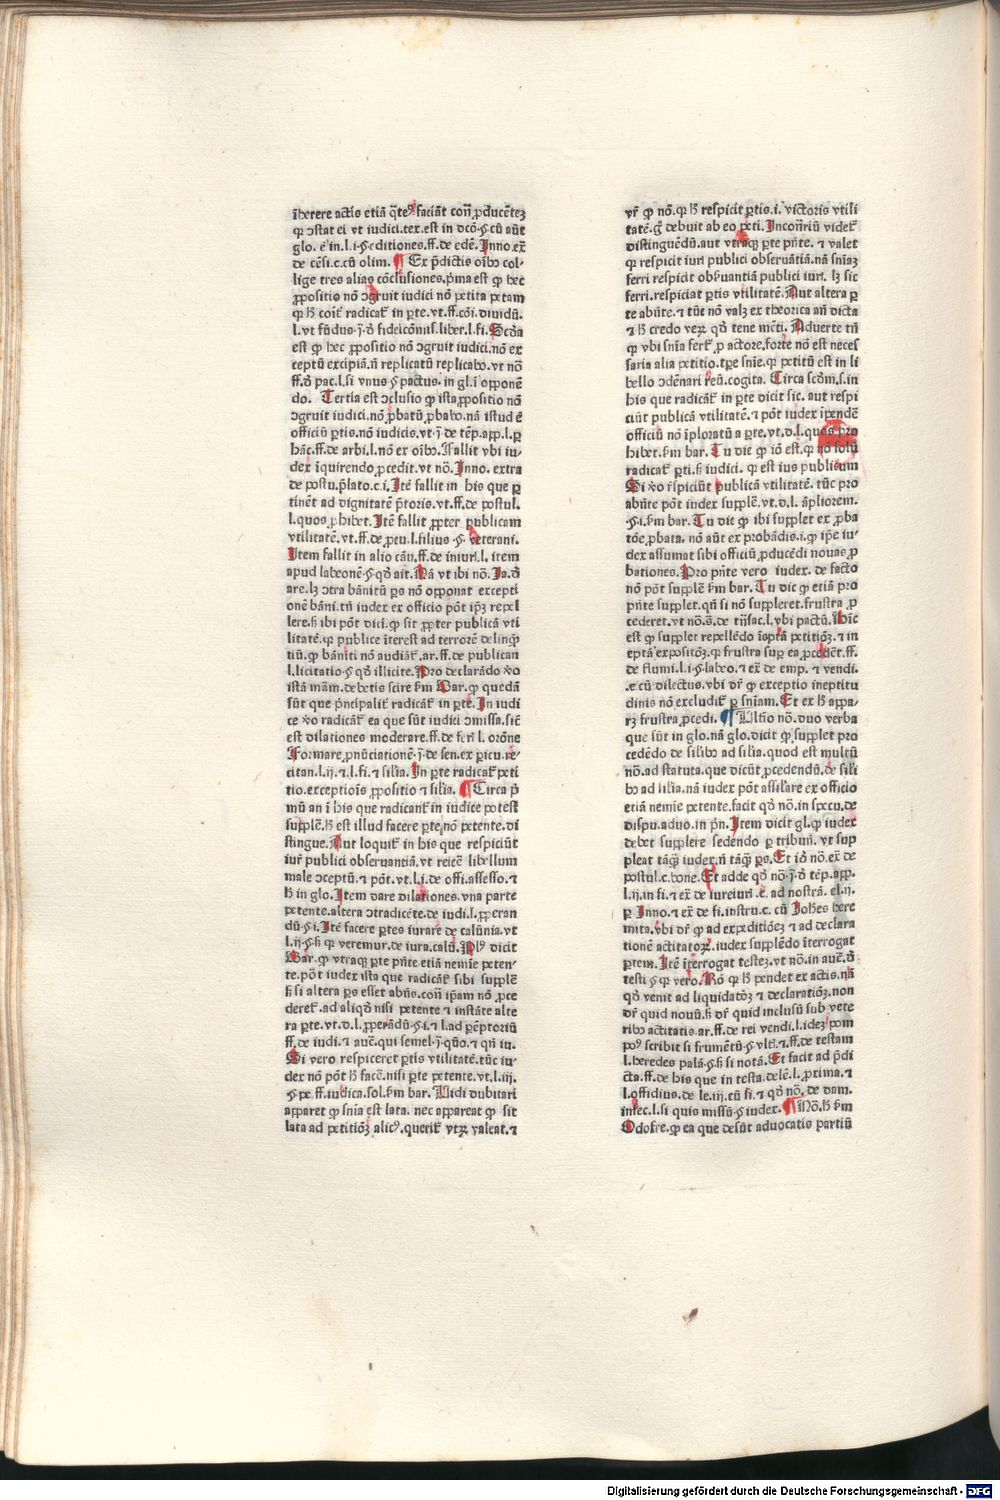 īherere actis etiā q̄teꝰ faciāt conn̄ ꝓducētez
qꝛ ɔstat ei vt iudici.tex.est in dc̄o.§.cū aūt
glo. ē in.l.i.§.editiones.ff.de edē. Inno.ex̄
de cēsi.c.cū olim. ¶ Ex p̄dictis oībꝰ col-
lige tres alias cōclusiones.p̄ma est ꝙ hec
ꝓpositio nō ɔgruit iudici nō petita petam
qꝛ h̄ coit̄ radicat̄ in ꝑte.vt.ff.cōi.diuidū.
l.vt fūdus.⁊.ō fideicōmis.liber.l.fi. Scd̄a
est ꝙ hec ꝓpositio nō ɔgruit iudici.nō ex
ceptū excipiā.n̄ replicatū replicabo.vt nō
ff.ō pac.l.si vnus.§.pactus.in gl.ī opponē
do. Tertia est ɔclusio ꝙ ista ꝓpositio nō
ɔgruit iudici.nō ꝓbatū ꝓbabo.nā istud ē
officiū ꝑtis.nō iudicis.vt.⁊.de tēp.app.l.ꝑ
hāc.ff.de arbi.l.nō ex oībꝰ. Fallit vbi iu-
dex īquirendo ꝓcedit.vt nō. Inno. extra
de postu.p̄lato.c.i. Itē fallit in his que ꝑ
tinēt ad dignitatē p̄toris.vt.ff.de postul.
l.quos ꝓhibet. Itē fallit ꝓpter publicam
vtilitatē.vt.ff.de pecu.l.filius.§.veterani.
Item fallit in alio cāu.ff.de iniuri.l. item
apud labeonē.§.qd̄ ait. Nā vt ibi nō. Ja.ō
are.lꝫ ɔtra bānitū ꝑs nō opponat excepti
onē bāni.tn̄ iudex ex officio pōt ip̄ꝫ repel
lere.s̄ ibi pōt dici.ꝙ sit ꝓpter publicā vti
litatē.qꝛ publice īterest ad terrorē delinq̄
tiū.ꝙ bāniti nō audiāt̄.ar.ff.de publican
l.licitatio.§.qd̄ illicite. Pro declarādo ꝟo
istā mām.debetis scire ẜm Bar.ꝙ quedā
sūt que p̄ncipalit̄ radicāt̄ in ꝑte. In iudi
ce ꝟo radicāt̄ ea que sūt iudici ɔmissa.sic̄
est dilationes moderare.ff.de feri.l. orōne
Formare ꝓnūciationē.⁊.de sen.ex ꝑicu.re-
citan.l.ij.⁊.l.fi.⁊ silia. In ꝑte radicat̄ peti
tio.exceptiois̄ ꝓpositio ⁊ silia. ¶ Circa p̄
mū an ī his que radicant̄ in iudice potest
supplē.h̄ est illud facere ꝑte nō petente.di
stingue. Aut loquit̄ in his que respiciūt
iur̄ publici obseruantiā.vt reicē libellum
male ɔceptū.⁊ pōt.vt.l.i.de offi.assesso.⁊
h̄ in glo. Item dare dilationes.vna parte
petente.altera ɔtradicēte.de iudi.l.ꝓperan
dū.§.i. Itē facere ꝑtes iurare de calūnia.vt
l.ij.§.s̄ qꝛ veremur.de iura.calū. Plꝰ dicit
Bar.ꝙ vtraqꝫ ꝑte pn̄te etiā nemīe peten-
te.pōt iudex ista que radicāt̄ sibi supplē
s̄ si altera ꝑs esset abn̄s.conn̄ ip̄am nō ꝓce
deret̄.ad aliqd̄ nisi petente ⁊ instāte alte
ra ꝑte.vt.d.l.ꝓperādū.§.i.⁊ l.ad ꝑēptoriū
ff.de iudi.⁊ auē.qui semel.⁊.qūo.⁊ qn̄ iu.
Si vero respiceret ꝑtis vtilitatē.tūc iu-
dex nō pōt h̄ facē.nisi ꝑte petente.vt.l.iij.
§.pe.ff.iudica.sol.ẜm bar. Uidi dubitari
apparet ꝙ sn̄ia est lata. nec appareat ꝙ sit
lata ad petitiōꝫ alicꝰ.querit̄ vtꝝ valeat.⁊
vr̄ ꝙ nō.qꝛ h̄ respicit ꝑtis.i. victoris vtili
tatē.g̊ debuit ab eo peti. In conn̄riū videt̄
distinguēdū.aut vtraqꝫ ꝑte pn̄te. ⁊ valet
qꝛ respicit iuri publici obseruātiā.nā sn̄iaꝫ
ferri respicit obẜuantiā publici iuri. lꝫ sic
ferri.respiciat ꝑtis vtilitatē. Aut altera ꝑ
te abn̄te.⁊ tūc nō valꝫ ex theorica an̄ dicta
⁊ h̄ credo veꝝ qd̄ tene mēti. Aduerte tn̄
ꝙ vbi sn̄ia fert̄ ꝓ actore.forte nō est neces
saria alia petitio.tp̄e sn̄ie.qꝛ petitū est in li
bello ɔdēnari reū.cogita. Circa scd̄m.s.in
his que radicāt̄ in ꝑte dicit sic. aut respi
ciūt publicā vtilitatē.⁊ pōt iudex īpendē
officiū nō īploratū a ꝑte.vt.d.l.quos pro
hibet.ẜm bar. Tu dic ꝙ iō est.qꝛ nō solū
radicat̄ ꝑti.s̄ iudici. qꝛ est ius publicum
Si ꝟo r̄spiciūt publicā vtilitatē. tūc pro
abn̄te pōt iudex supplē.vt.d.l. āpliorem.
§.i.ẜm bar. Tu dic ꝙ ibi supplet ex ꝓba
tōe ꝓbata. nō aūt ex probādis.i.ꝙ ip̄e iu-
dex assumat sibi officiū ꝓducēdi nouas ꝓ
bationes. Pro pn̄te vero iudex. de facto
nō pōt supplē ẜm bar. Tu dic ꝙ etiā pro
pn̄te supplet.qn̄ si nō suppleret.frustra ꝓ
cederet.vt nō.ō. de trāsac.l.vbi pactū. Hīc
est ꝙ supplet repellēdo īeptā petitiōꝫ.⁊ in
eptā expositōꝫ.qꝛ frustra suꝑ ea ꝓcedēt.ff.
de flumi.l.i.§.labeo.⁊ ex̄ de emp. ⁊ vendi.
.c.cū dilectus.vbi dr̄ ꝙ exceptio ineptitu
dinis nō excludit̄ ꝑ sn̄iam. Et ex h̄ appa-
rꝫ frustra ꝓcedi. ¶ Ultīo nō.duo verba
que sūt in glo.nā glo.dicit ꝙ supplet pro
cedēdo de silibꝰ ad silia.quod est multū
nō.ad statuta.que dicūt ꝓcedendū.de sili
bꝰ ad silia.nā iudex pōt assiliare ex officio
etiā nemīe petente.facit qd̄ nō.in specu.de
dispu.aduo.in pn̄. Item dicit gl.ꝙ iudex
debet supplere sedendo ꝑ tribun̄. vt sup
pleat tāqꝫ̄ iudex.n̄ tāqꝫ̄ ꝑs. Et iō nō.ex̄ de
postul.c.bone. Et adde qd̄ nō.⁊.ō tēp.app.
l.ij.in fi.⁊ ex̄ de iureiur̄.c̄. ad nostrā. el.ij.
ꝑ Inno.⁊ ex̄ de fi.instru.c. cū Joh̄es here
mita.vbi dr̄ ꝙ ad expeditiōeꝫ ⁊ ad declara
tionē actitatoꝝ.iudex supplēdo īterrogat
ꝑtem. Itē īterrogat testeꝫ.vt nō.in auē.ō
testi.§.qꝛ vero. Rō qꝛ h̄ pendet ex actis.nā
qd̄ venit ad liquidatōꝫ ⁊ declaratiōꝫ.non
dr̄ quid nouū.s̄ dr̄ quid inclusū sub vete
ribꝰ actitatis.ar.ff.de rei vendi.l.ideꝫ pom
poꝰ scribit si frumētū.§.vlti.⁊.ff.de testam
l.heredes palā.§.s̄ si notā. Et facit ad p̄di
cta.ff.de his que in testa.delē.l. ꝓxima.⁊
l.offidius.de le.iij.cū fi.⁊ qd̄ nō. de dam.
infec.l.si quis missū.§.iudex. ¶ Nō.h̄ ẜm
Odofre.ꝙ ea que desūt aduocatis partiū
Digitalisierung gefördert durch die Deutsche Forschungsgemeinschaft - DFG